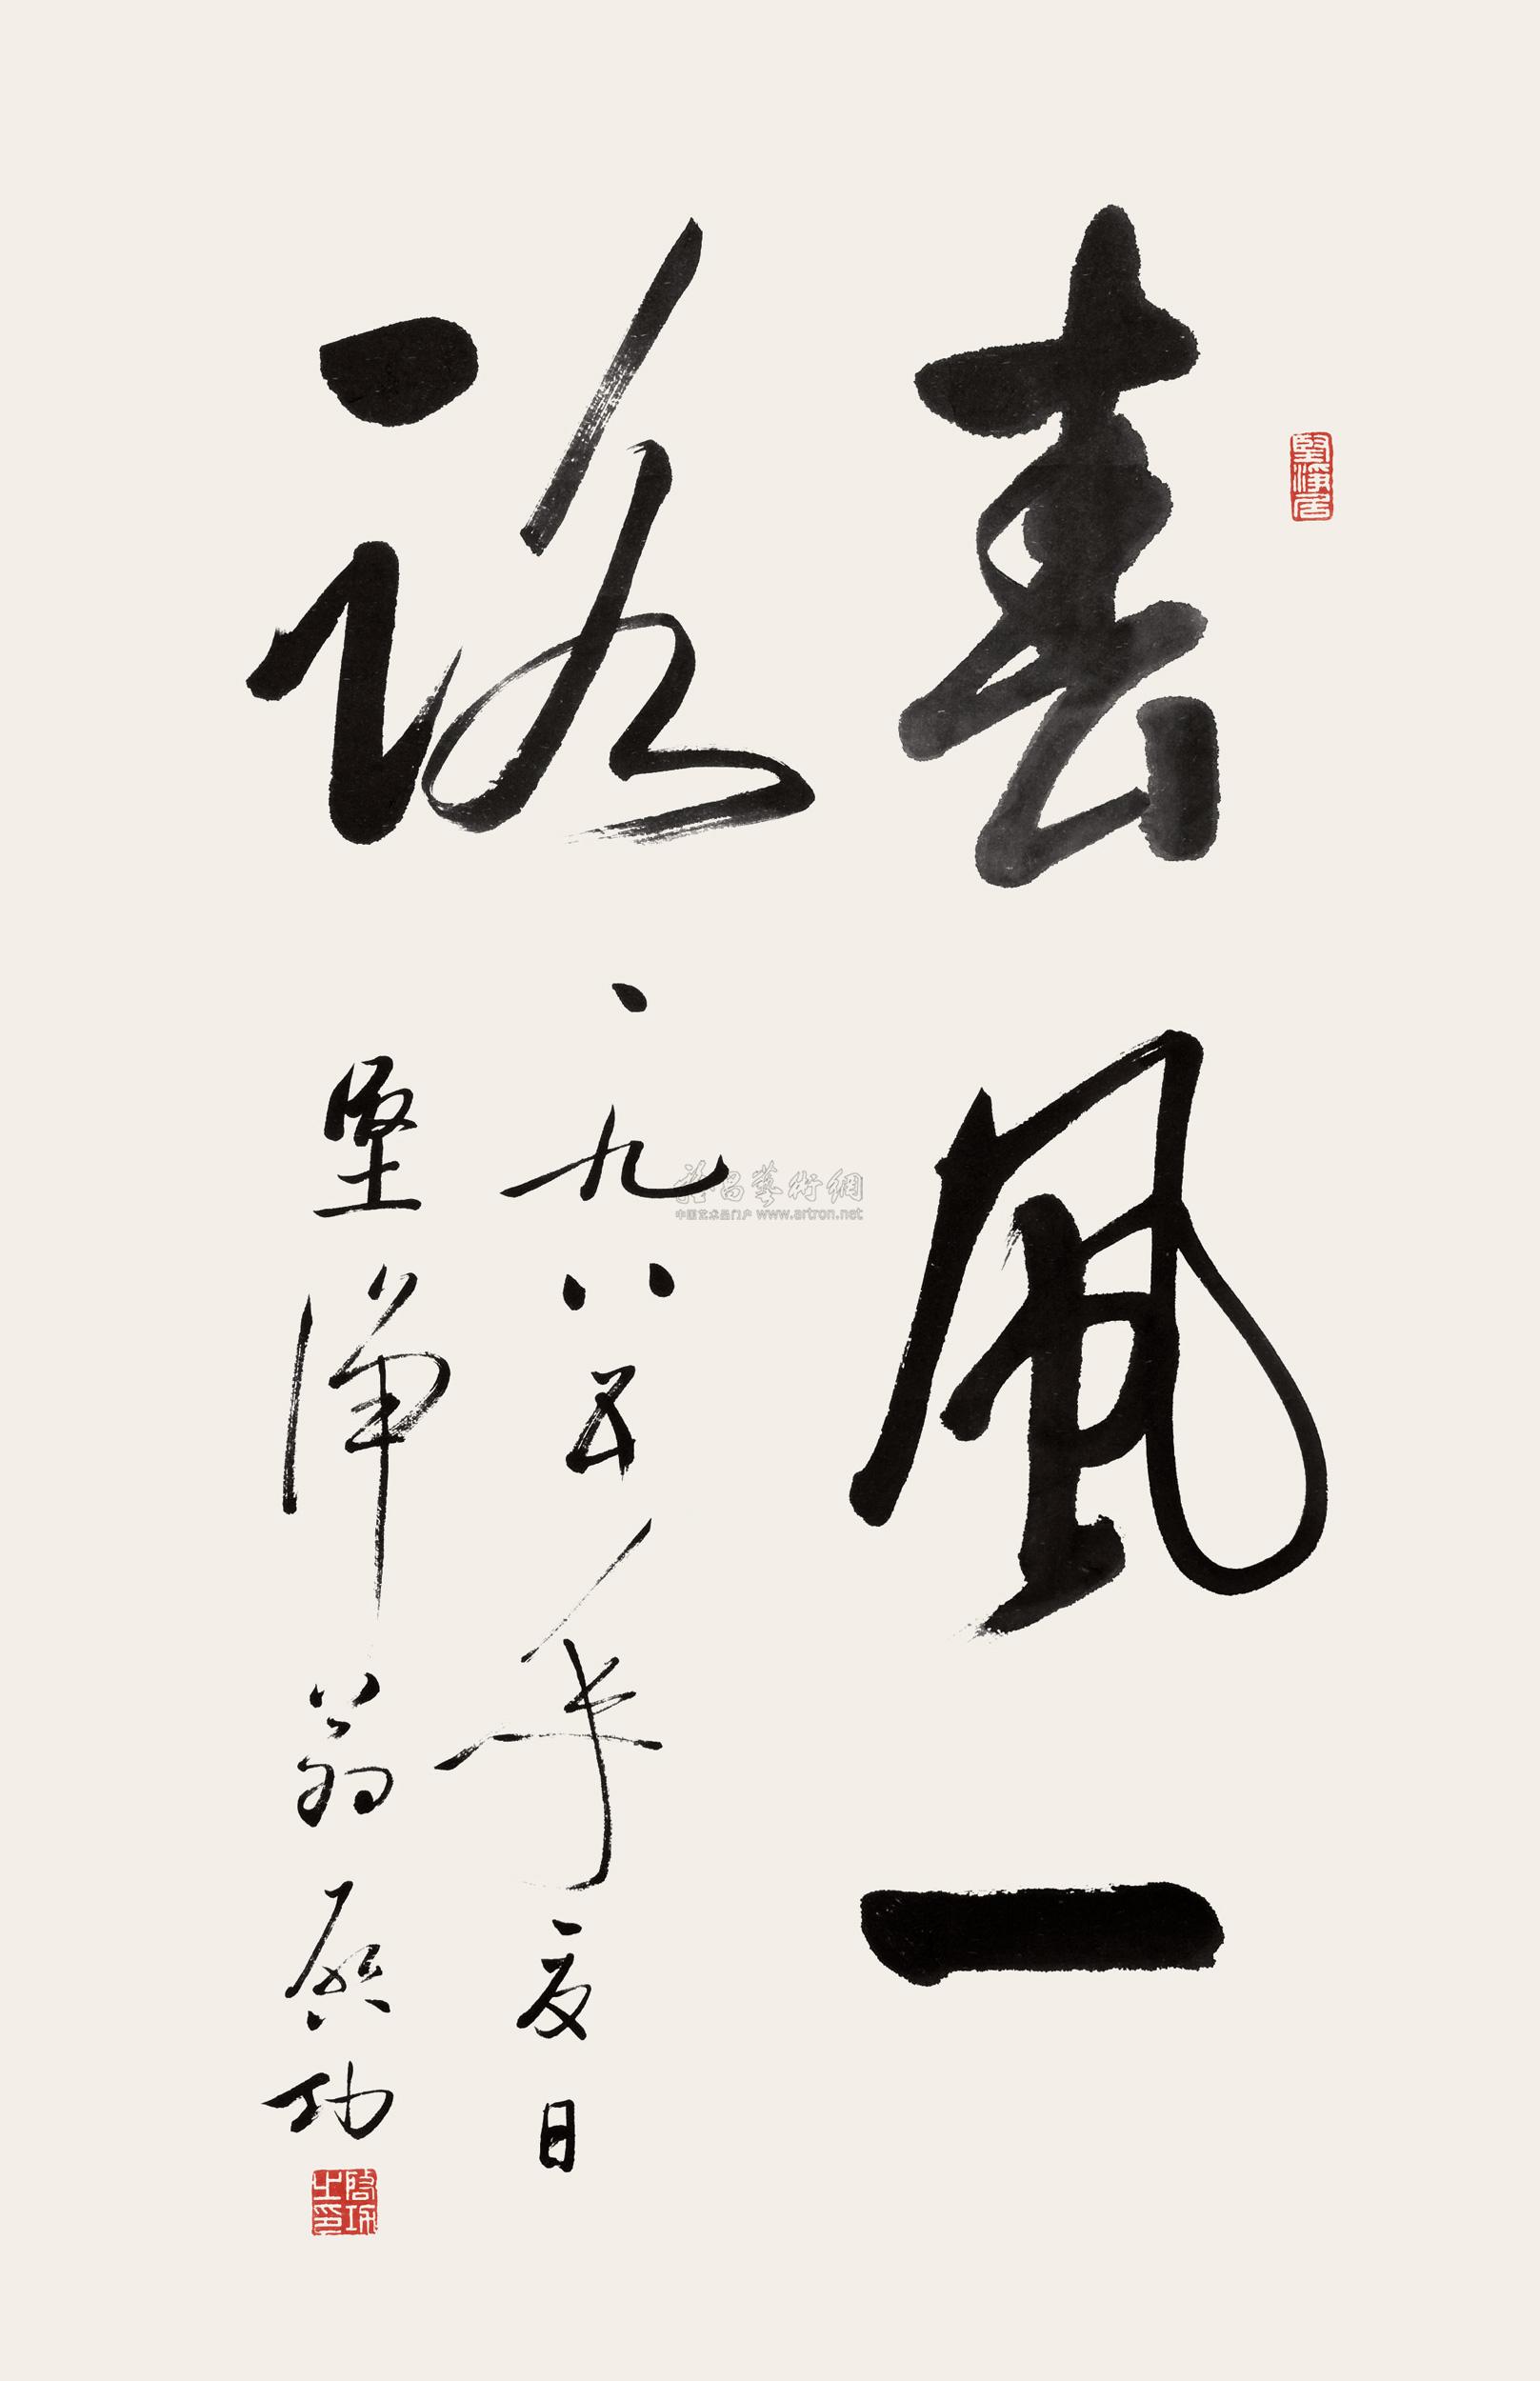 堅淨居
春風一
路
一九八五年夏日
堅淨翁啓功
启功之印
雅昌藝術網
中国艺术品门户 www.artron.net